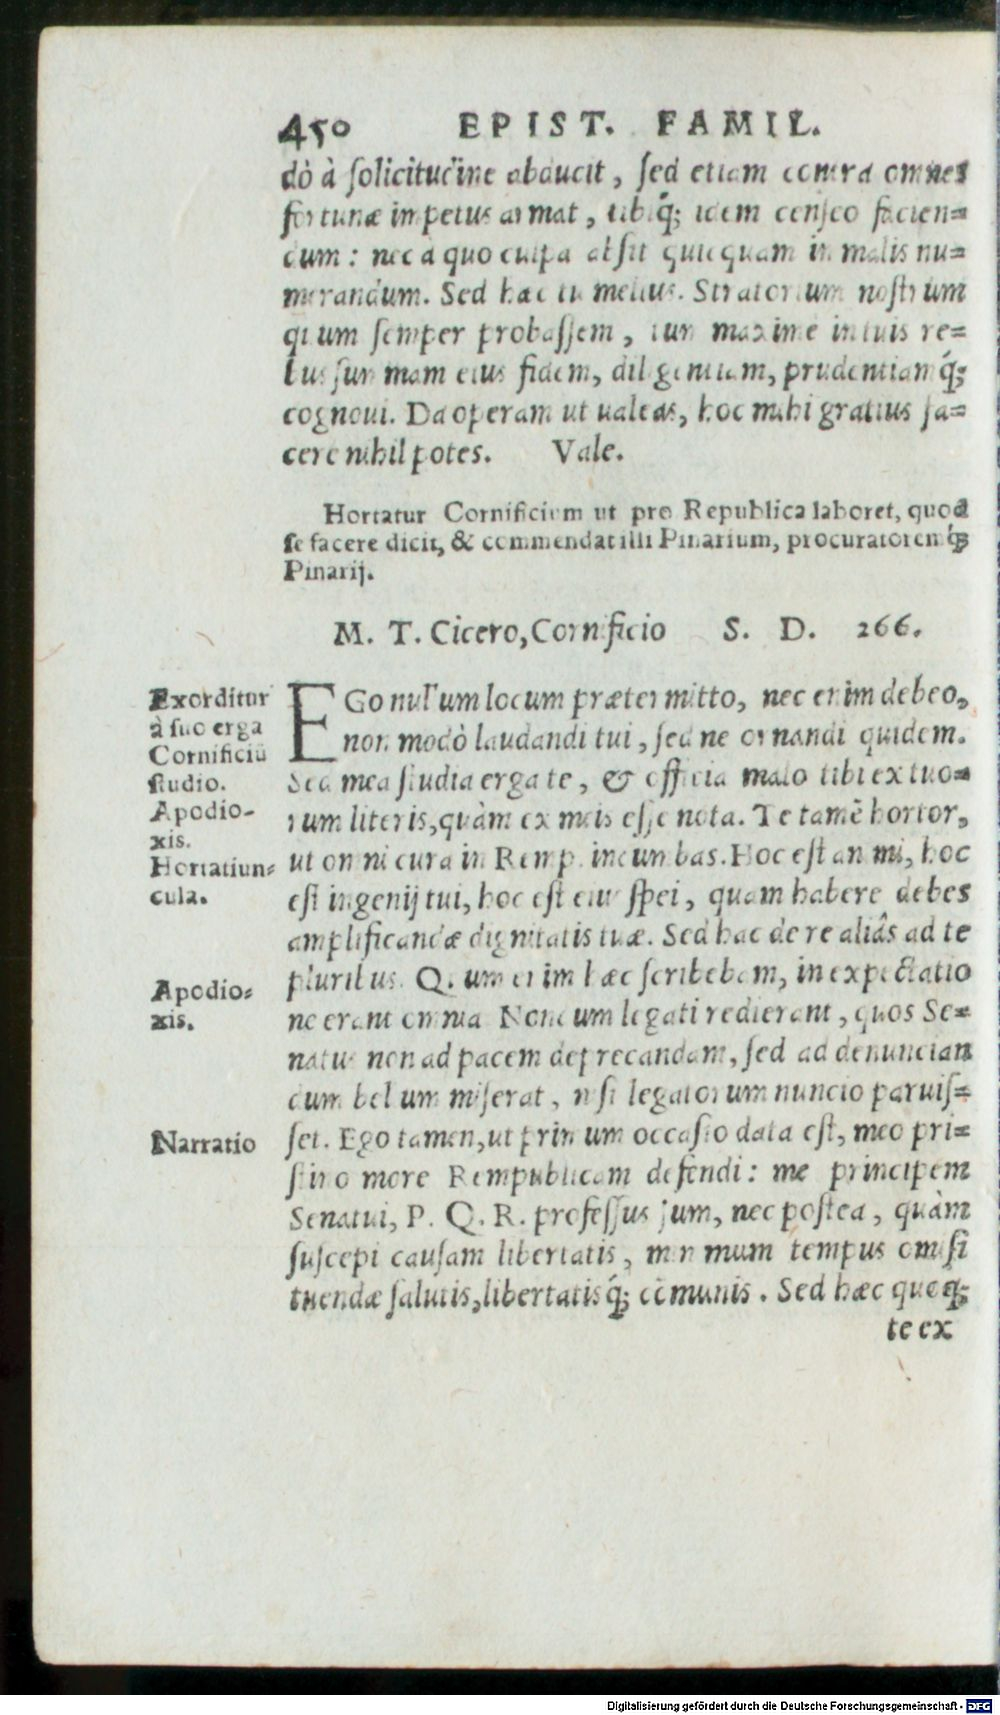 450 EPIST. FAMIL.
dò à ſolicitudine abducit, ſed etiam contra omnes
fortunæ impetus armat, tibiq́; idem cenſeo facien=
dum: nec a quo culpa abſit quicquam in malis nu=
merandum. Sed hæc tu melius. Stratorium noſtrum
quum ſemper probaſſem, tum maxime in tuis re=
bus ſummam eius fidem, diligentiam, prudentiamq́;
cognoui. Da operam ut ualeas, hoc mihi gratius fa=
cere nihil potes. Vale.
Hortatur Cornificium ut pro Republica laboret, quod
ſe facere dicit, & commendat illi Pinarium, procuratoremq́;
Pinarij.
M. T. Cicero, Cornificio S. D. 266.
Exorditur
à ſuo erga
Cornificiū
ſtudio.
Apodio-
xis.
Hortatiun=
cula.
EGo nullum locum prætermitto, nec enim debeo,
non modò laudandi tui, ſed ne ornandi quidem.
Sed mea ſtudia erga te, & officia malo tibi ex tuo=
rum literis, quàm ex meis eſſe nota. Te tamē hortor,
ut omni cura in Remp. incumbas. Hoc eſt animi, hoc
eſt ingenij tui, hoc eſt eius ſpei, quam habere debes
amplificandæ dignitatis tuæ. Sed hac de re aliâs ad te
pluribus. Quum enim hæc ſcribebam, in expectatio
Apodio=
xis.
ne erant omnia. Nondum legati redierant, quos Se=
natus non ad pacem deprecandam, ſed ad denuncian
dum bellum miſerat, niſi legatorum nuncio paruiſ=
Narratio
ſet. Ego tamen, ut primum occaſio data eſt, meo pri=
ſtino more Rempublicam defendi: me principem
Senatui, P. Q. R. profeſſus ſum, nec poſtea, quàm
ſuſcepi cauſam libertatis, minimum tempus omiſi
tuendæ ſalutis, libertatisq́; cōmunis. Sed hæc quoq́;
te ex
Digitalisierung gefördert durch die Deutsche Forschungsgemeinschaft - DFG